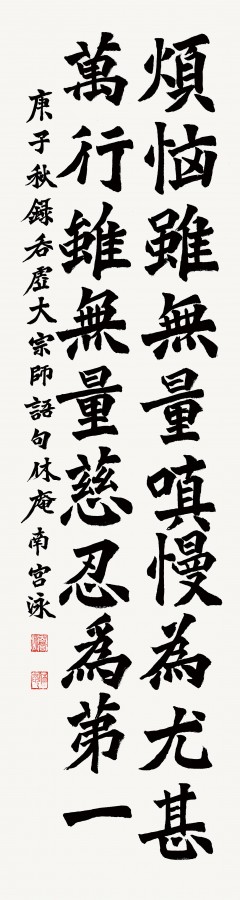 煩惱雖無量嗔慢為尤甚
萬行雖無量慈忍爲第一
庚子秋錄吞虛大宗師語句休庵南宮泳